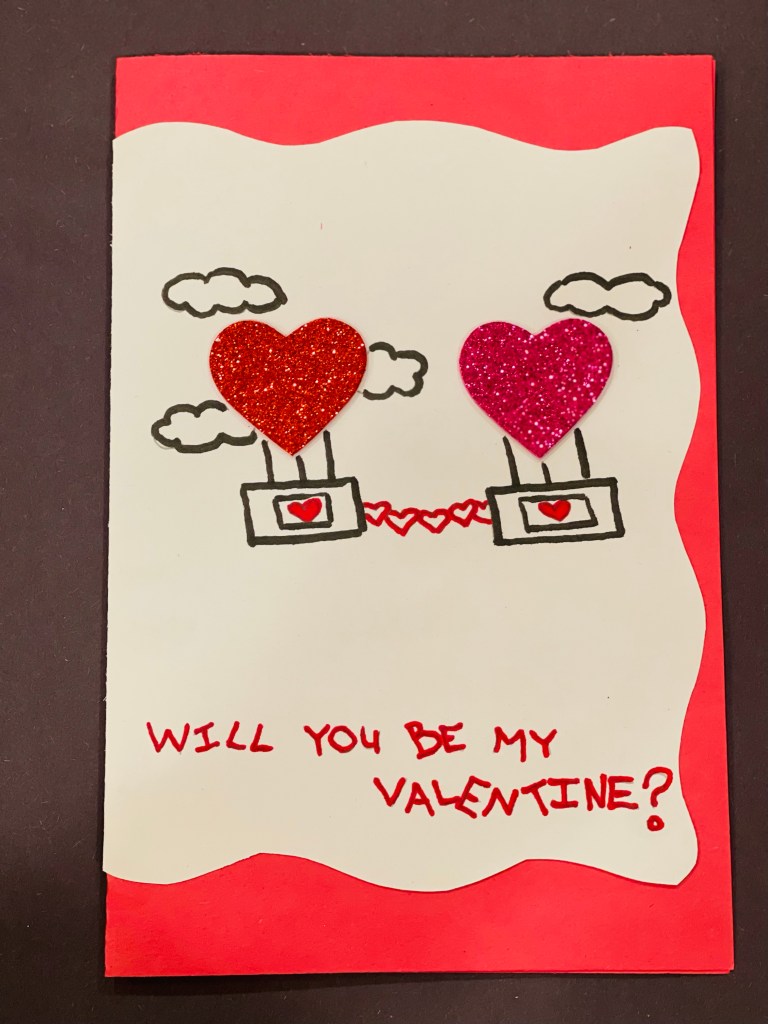 WILL YOU BE MY
VALENTINE?